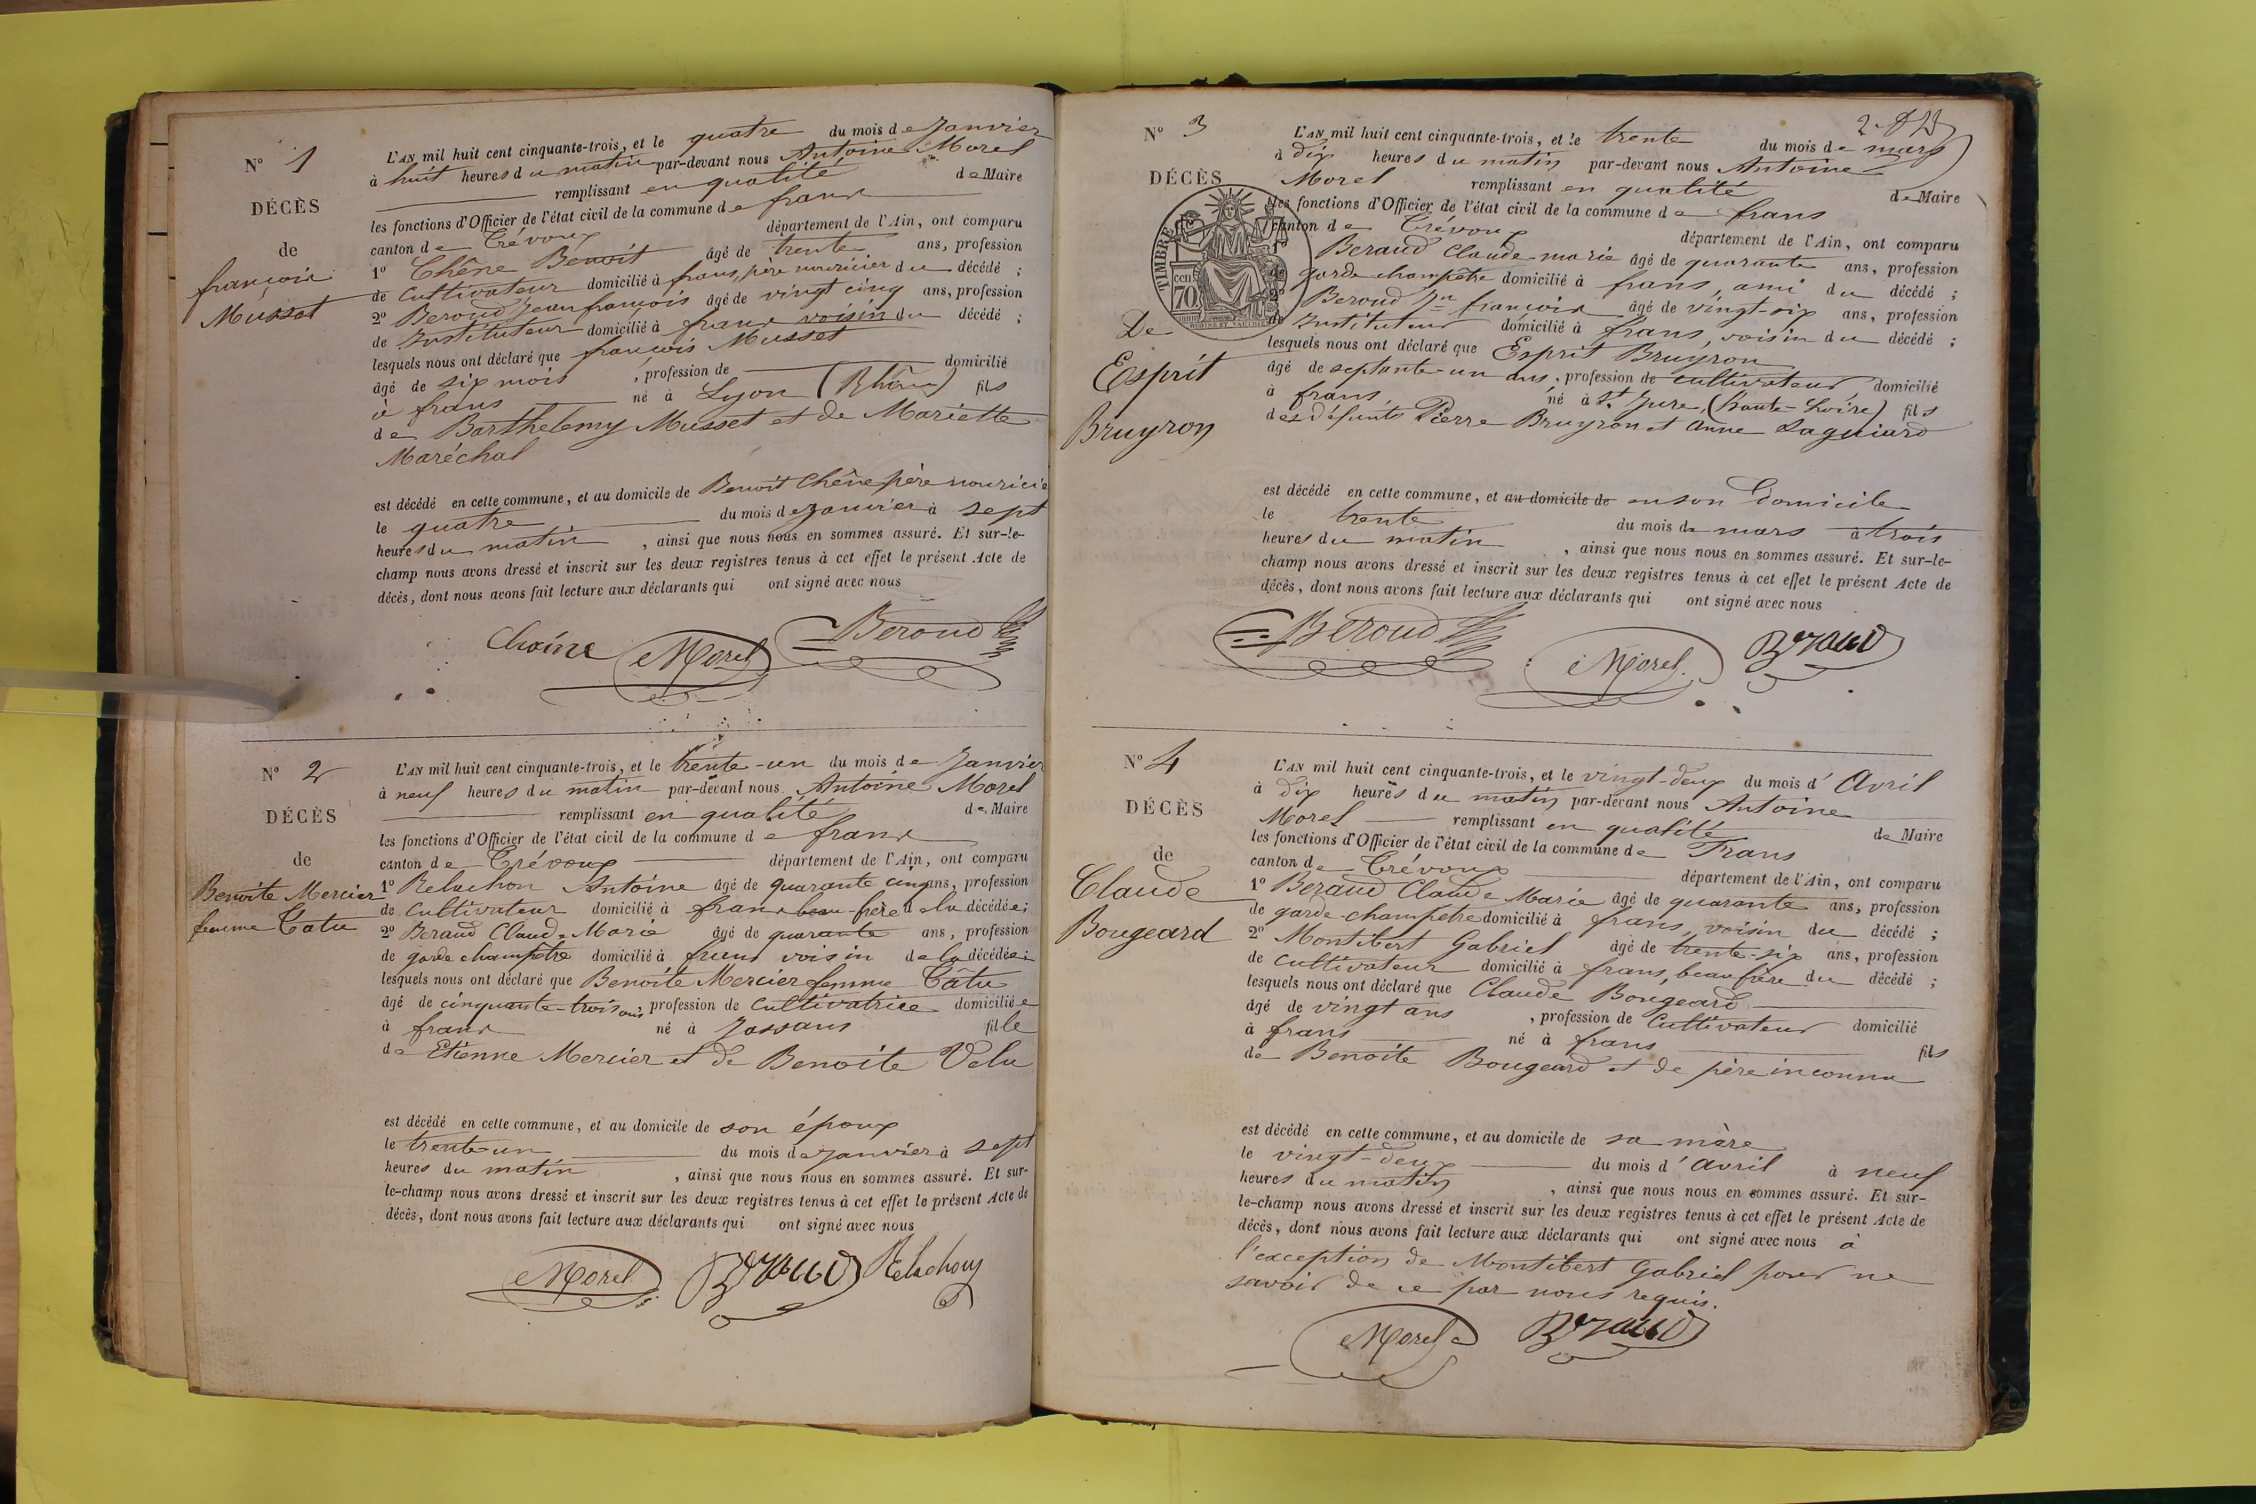 N° 1
DÉCÈS
de
françois
Musset
L'AN mil huit cent cinquante-trois, et le quatre du mois de Janvier
à huit heures du matin par-devant nous Antoine Morel
remplissant en qualité de Maire
les fonctions d'Officier de l'état civil de la commune de frans
canton de Trévoux département de l'Ain, ont comparu
1° Chêne Benoit âgé de trente ans, profession
de Cultivateur domicilié à frans, père nouricier du décédé ;
2° Beroud Jean françois âgé de vingt cinq ans, profession
de Instituteur domicilié à frans voisin du décédé ;
lesquels nous ont déclaré que françois Musset
âgé de six mois , profession de domicilié
à frans né à Lyon (Rhône) fils
de Barthelemy Musset et de Mariette
Maréchal
est décédé en cette commune, et au domicile de Benoit Chêne père nouricie
le quatre du mois de Janvier à sept
heures du matin , ainsi que nous nous en sommes assuré. Et sur-le-
champ nous avons dressé et inscrit sur les deux registres tenus à cet effet le présent Acte de
décès, dont nous avons fait lecture aux déclarants qui ont signé avec nous
Chaîne Morel Beroud
N° 2
DÉCÈS
de
Benoite Mercier
femme Tatu
L'AN mil huit cent cinquante-trois, et le trente-un du mois de Janvier
à neuf heures du matin par-devant nous Antoine Morel
remplissant en qualité de Maire
les fonctions d'Officier de l'état civil de la commune de frans
canton de Trévoux département de l'Ain, ont comparu
1° Relachon Antoine âgé de quarante cinq ans, profession
de Cultivateur domicilié à frans beau-frère de la décédée ;
2° Beraud Claude Marie âgé de quarante ans, profession
de garde champêtre domicilié à frans voisin de la décédée ;
lesquels nous ont déclaré que Benoite Mercier femme Tâtu
âgé de cinquante-trois ans, profession de Cultivatrice domiciliée
à frans né à Jassans fille
de Etienne Mercier et de Benoite Velu
est décédé en cette commune, et au domicile de son époux
le trente un du mois de Janvier à sept
heures du matin , ainsi que nous nous en sommes assuré. Et sur-
le-champ nous avons dressé et inscrit sur les deux registres tenus à cet effet le présent Acte de
décès, dont nous avons fait lecture aux déclarants qui ont signé avec nous
Morel Beraud Relachon
N° 3
DÉCÈS
TIMBRE
70
De
Esprit
Bruyron
L'AN mil huit cent cinquante-trois, et le trente du mois de mars
à dix heures du matin par-devant nous Antoine
Morel remplissant en qualité de Maire
les fonctions d'Officier de l'état civil de la commune de frans
canton de Trévoux département de l'Ain, ont comparu
1° Beraud Claude marie âgé de quarante ans, profession
de garde champêtre domicilié à frans, ami du décédé ;
2° Beroud Jn françois âgé de vingt-six ans, profession
de Instituteur domicilié à frans, voisin du décédé ;
lesquels nous ont déclaré que Esprit Bruyron
âgé de septante-un ans, profession de cultivateur domicilié
à frans, né à St Jure, (haute-Loire) fils
des défunts Pierre Bruyron et Anne Laguiard
est décédé en cette commune, et au domicile de en son Domicile
le trente du mois de mars à trois
heures du matin , ainsi que nous nous en sommes assuré. Et sur-le-
champ nous avons dressé et inscrit sur les deux registres tenus à cet effet le présent Acte de
décès, dont nous avons fait lecture aux déclarants qui ont signé avec nous
Beroud Morel Beraud
N° 4
DÉCÈS
de
Claude
Bougeard
L'AN mil huit cent cinquante-trois, et le vingt-deux du mois d'Avril
à dix heures du matin par-devant nous Antoine
Morel remplissant en qualité de Maire
les fonctions d'Officier de l'état civil de la commune de Frans
canton de Trévoux département de l'Ain, ont comparu
1° Beraud Claude Marie âgé de quarante ans, profession
de garde-champêtre domicilié à frans, voisin du décédé ;
2° Montibert Gabriel âgé de trente-six ans, profession
de Cultivateur domicilié à frans, beau frère du décédé ;
lesquels nous ont déclaré que Claude Bougeard
âgé de vingt ans , profession de Cultivateur domicilié
à frans né à frans fils
de Benoite Bougeard et de père inconnu
est décédé en cette commune, et au domicile de sa mère
le vingt-deux du mois d'Avril à neuf
heures du matin , ainsi que nous nous en sommes assuré. Et sur-
le-champ nous avons dressé et inscrit sur les deux registres tenus à cet effet le présent Acte de
décès, dont nous avons fait lecture aux déclarants qui ont signé avec nous à
l'exception de Montibert Gabriel pour ne
savoir de ce par nous requis.
Morel Beraud